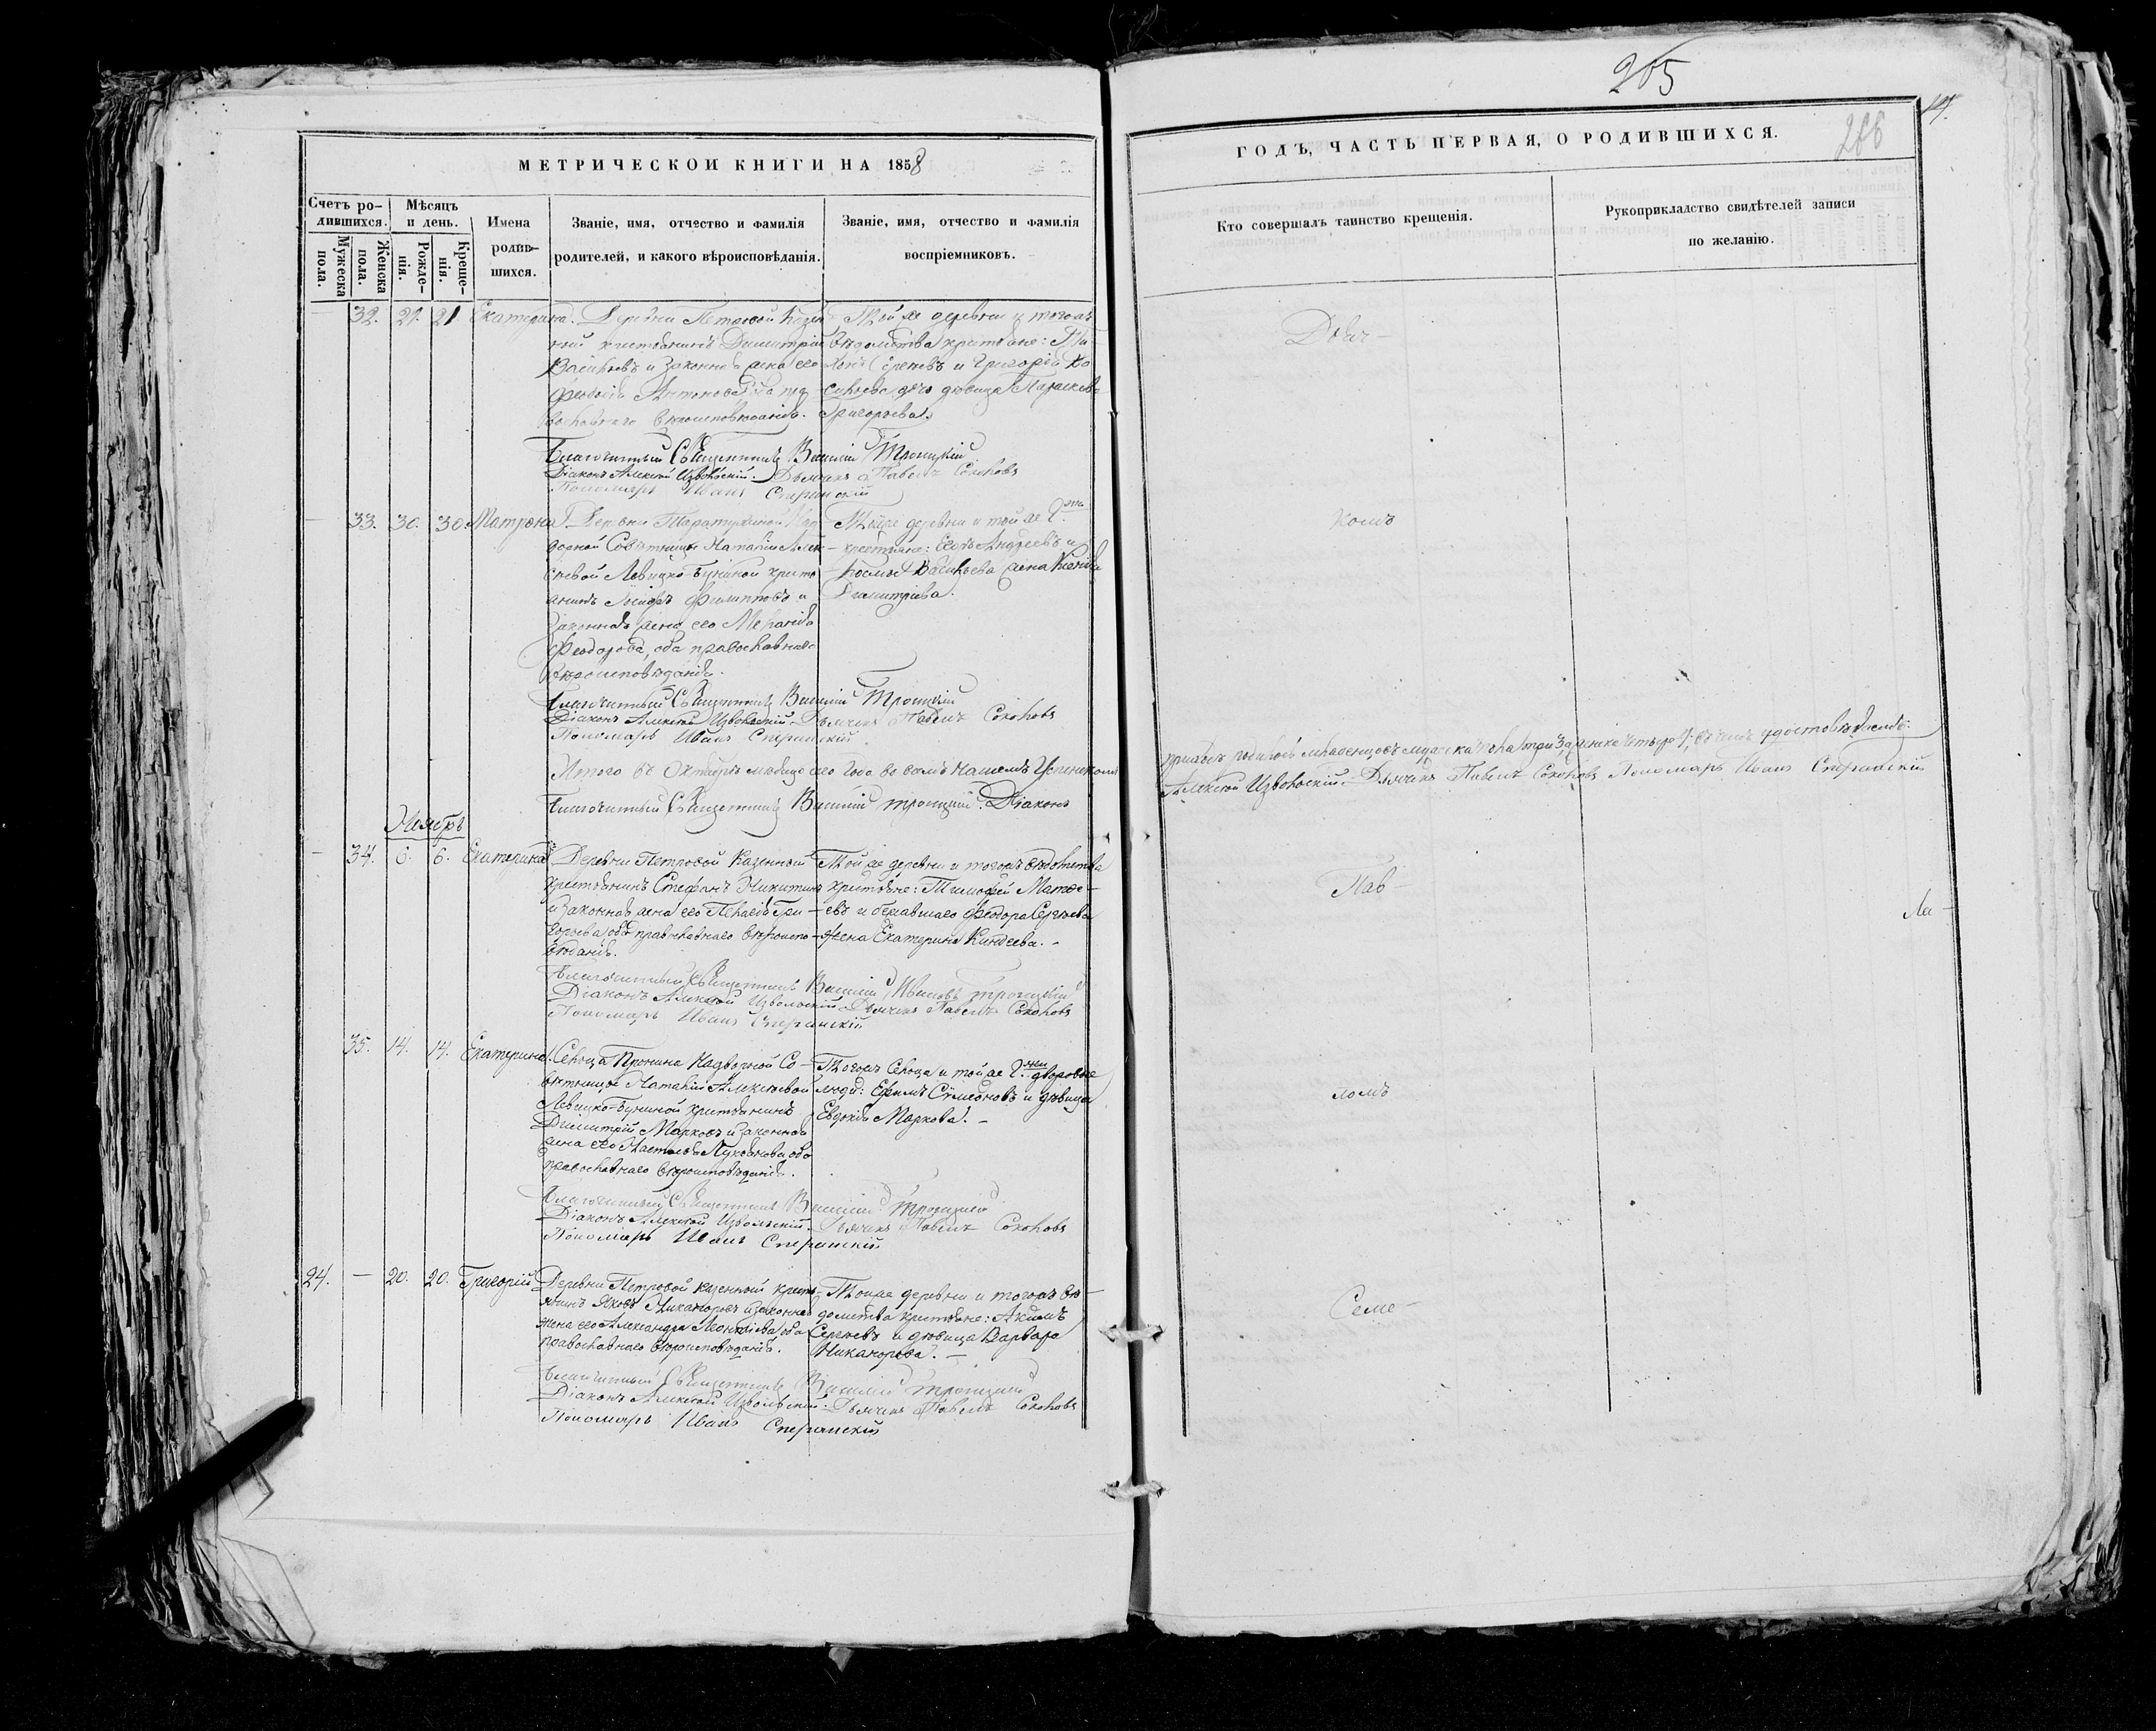 205
14.
МЕТРИЧЕСКОЙ КНИГИ НА 1858
Счетъ ро-
дившихся.
Мужеска
пола.
Женска
пола.
Мѣсяцъ
и день.
Рожде-
нія.
Креще-
нія.
Имена
родив-
шихся.
Званіе, имя, отчество и фамилія
родителей, и какого вѣроисповѣданія.
Званіе, имя, отчество и фамилія
воспріемниковъ.
32. 21. 21 Екатерина.
Деревни Петровой Казен-
ный крестьянинъ Димитрій
Васильевъ и законная жена его
Антонова оба пра-
вославнаго вѣроисповѣданія.
Той же деревни и тогожъ
вѣдомства крестьяне: Ти-
хонъ Сергѣевъ и Григорія Ва-
сильева дочь дѣвица Параскева
Григорьева.
Благочинный Священникъ Василій Троицкій
Діаконъ Алексѣй Извольскій. Дьячекъ Павелъ Соколовъ
Пономарь Иванъ Сперанскій
33. 30. 30. Матрона
Деревни Таратухиной Над-
ворной Совѣтницы Наталіи Алек-
сѣевой Левицко-Буниной кресть-
янинъ Іосифъ Филипповъ и
Законная жена его Меланія
Феодорова, оба православнаго
вѣроисповѣданія.
Тойже деревни и той же Г.жи
крестьяне: Андреевъ и
Косьмы Васильева жена Ксенія
Димитріева.
Благочинный Священникъ Василій Троицкій
Діаконъ Алексѣй Извольскій. Дьячекъ Павелъ Соколовъ
Пономарь Иванъ Сперанскій
Итого въ Октябрѣ мѣсяцѣ сего года во всемъ нашемъ Успенскомъ
Благочинный Священникъ Василій Троицкій. Діаконъ
Ноябрь
34. 6. 6. Екатерина
Деревни Петровой Казенный
крестьянинъ Стефанъ Никитинъ
и Законная жена его Пелагія Гри-
горьева оба православнаго вѣроиспо-
вѣданія.
Той же деревни и тогожъ вѣдомства
крестьяне: Тимофей Матѳе-
евъ и бежавшаго Феодора Сергѣева
жена Екатерина Киндеева. -
Благочинный Священникъ Василій Ивановъ Троицкій
Діаконъ Алексѣй Извольскій. Дьячекъ Павелъ Соколовъ
Пономарь Иванъ Сперанскій
35. 14. 14. Екатерина.
Сельца Пронина Надворной Со-
вѣтницы Наталіи Алексѣевой
Левицко-Буниной крестьянинъ
Димитрій Марковъ и законная
жена его Настасья Лукьянова оба
православнаго вѣроисповѣданія.
Тогожъ Сельца и той же Г.жи дворовые
люди: Ефимъ Симеоновъ и дѣвица
Евдокія Маркова. -
Благочинный Священникъ Василій Троицкій
Діаконъ Алексѣй Извольскій. Дьячекъ Павелъ Соколовъ
Пономарь Иванъ Сперанскій
24. — 20. 20. Григорій
Деревни Петровой казенный кресть-
янинъ Яковъ Никаноровъ и законная
жена его Александра Леонтіева оба
православнаго вѣроисповѣданія.
Тойже деревни и тогожъ вѣ-
домства крестьяне: Акимъ
Сергѣевъ и дѣвица Варвара
Никанорова. -
Благочинный Священникъ Василій Троицкій
Діаконъ Алексѣй Извольскій. Дьячекъ Павелъ Соколовъ
Пономарь Иванъ Сперанскій
ГОДЪ, ЧАСТЬ ПЕРВАЯ, О РОДИВШИХСЯ.
Кто совершалъ таинство крещенія.
Рукоприкладство свидѣтелей записи
по желанію.
комъ
приходѣ родилось младенцовъ мужеска пола три 3, а женска четыре 4; въ чемъ удостовѣряемъ:
Алексѣй Извольскій. Дьячекъ Павелъ Соколовъ Пономарь Иванъ Сперанскій
Пав-
ломъ
Семе-